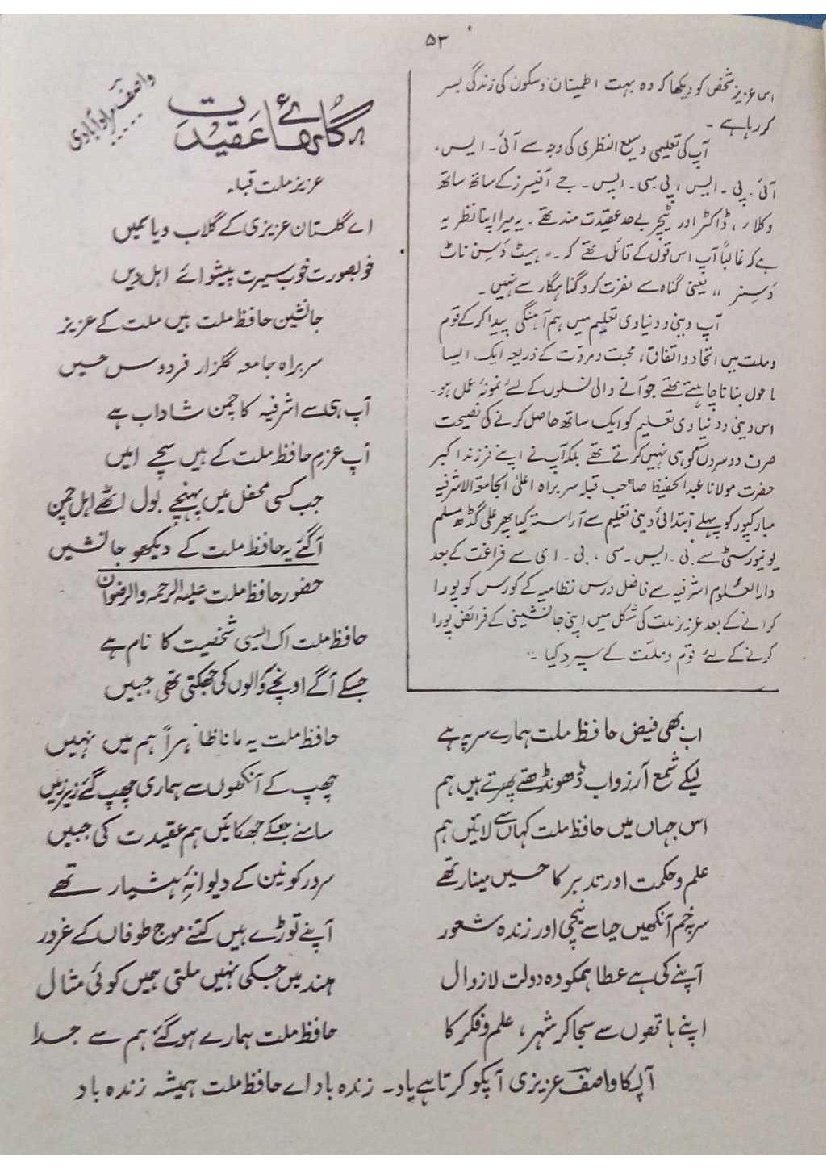 ۵۲
اسی عزیز شخص کو دیکھا کہ وہ بہت اطمینان و سکون کی زندگی بسر
کر رہا ہے۔
آپ کی تعلیمی وسیع النظری کی وجہ سے آئی۔ ایس۔
آئی۔ پی۔ ایس، پی۔سی۔ ایس۔ جے آفیسرز کے ساتھ ساتھ
وکلاء، ڈاکٹر اور ٹیچر بے حد عقیدت مند تھے۔ یہ میرا اپنا نظریہ
ہے کہ غالباً آپ اس قول کے قائل تھے کہ۔۔ ہیٹ دَ سِن ناٹ
دَ سِنر ،، یعنی گناہ سے نفرت کرو گناہگار سے نہیں۔
آپ دینی و دنیاوی تعلیم میں ہم آہنگی پیدا کر کے قوم
و ملت میں اتحاد و اتفاق، محبت و مروّت کے ذریعہ ایک ایسا
ماحول بنانا چاہتے تھے جو آنے والی نسلوں کے لئے نمونۂ عمل ہو۔
اس دینی و دنیاوی تعلیم کو ایک ساتھ حاصل کرنے کی نصیحت
صرف دوسروں کو ہی نہیں کرتے تھے بلکہ آپ نے اپنے فرزند اکبر
حضرت مولانا عبدالحفیظ صاحب قبلہ سربراہ اعلیٰ الجامعۃ الاشرفیہ
مبارکپور کو پہلے ابتدائی دینی تعلیم سے آراستہ کیا پھر علی گڈھ مسلم
یونیورسٹی سے بی۔ ایس۔ سی، بی۔ ای سے فراغت کے بعد
دارالعلوم اشرفیہ سے فاضل درس نظامیہ کے کورس کو پورا
کرانے کے بعد عزیز ملت کی شکل میں اپنی جانشینی کے فرائض پورا
کرنے کے لئے قوم و ملّت کے سپرد کیا۔
گلہائے عقیدت
واصف مرادآبادی
عزیز ملت قبلہ
اے گلستان عزیزی کے گلاب و یاسمیں
خوبصورت خوب سیرت پیشوائے اہل دیں
جانشین حافظ ملت ہیں ملت کے عزیز
سربراہ جامعہ گلزار فردوس حسیں
آپ ہی سے اشرفیہ کا چمن شاداب ہے
آپ عزمِ حافظ ملت کے ہیں سچے امیں
جب کسی محفل میں پہنچے بول اٹھے اہل چمن
آگئے یہ حافظ ملت کے دیکھو جانشیں
حضور حافظ ملت علیہ الرحمہ والرضوان
حافظ ملت اک ایسی شخصیت کا نام ہے
جسکے آگے اونچے والوں کی جھکتی تھی جبیں
اب بھی فیض حافظ ملت ہمارے سر پہ ہے
حافظ ملت یہ مانا ظاہراً ہم میں نہیں
لیکے شمع آرزو اب ڈھونڈھتے پھرتے ہیں ہم
چھپ کے آنکھوں سے ہماری چھپ گئے زیر زمیں
اس جہاں میں حافظ ملت کہاں سے لائیں ہم
سامنے جسکے جھکائیں ہم عقیدت کی جبیں
علم و حکمت اور تدبر کا حسیں مینار تھے
سرور کونین کے دیوانۂ ہشیار تھے
سر خم آنکھیں حیا سے نیچی اور زندہ شعور
آپنے توڑے ہیں کتنے موج طوفاں کے غرور
آپنے کی ہے عطا ہمکو وہ دولت لازوال
ہند میں جسکی نہیں ملتی ہمیں کوئی مثال
اپنے ہاتھوں سے سجا کر شہر، علم و فکر کا
حافظ ملت ہمارے ہو گئے ہم سے جدا
آپکا واصف عزیزی آپکو کرتا ہے یاد۔ زندہ باد اے حافظ ملت ہمیشہ زندہ باد